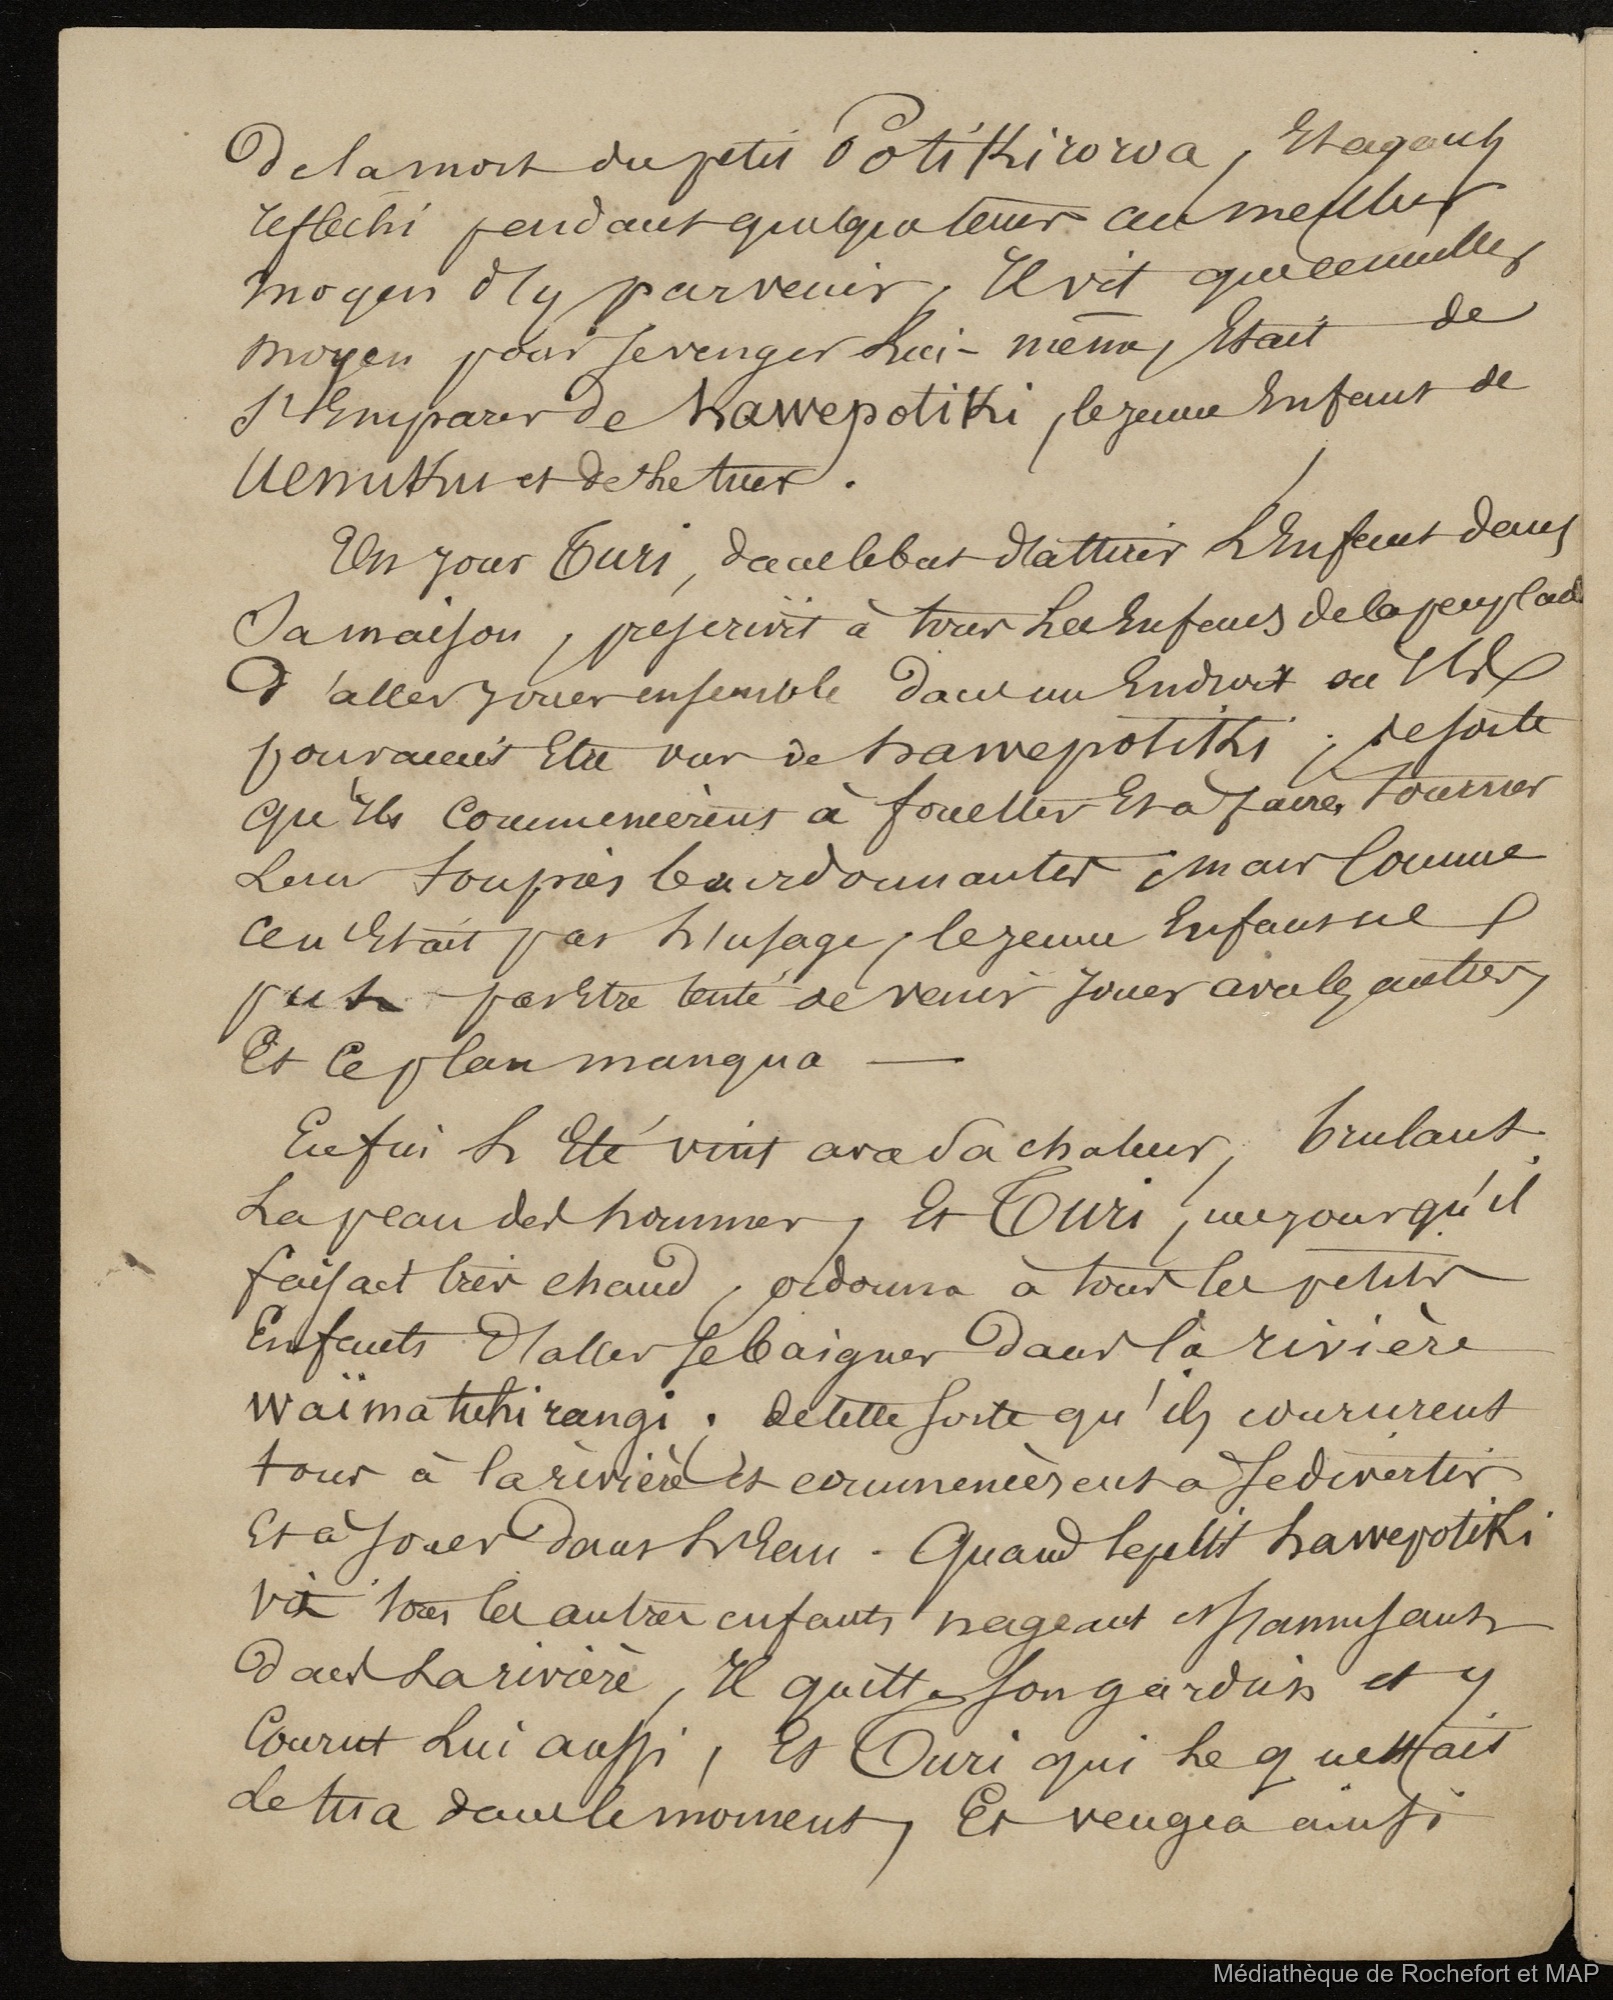 De la mort du petit Potikiroroa, Et ayant
réflechi pendant quelque tems au meilleur
moyen d'y parvenir, Il vit que le meilleur
moyen pour se venger Lui-même, Etait de
s'Emparer de hawepotiki, le jeune Enfant de
Uenuku et de Le tuer.
Un jour Turi, dans le but d'attirer L'Enfant dans
Sa maison, prescrivit à tous Les Enfans de la peuplade
D'aller jouer ensemble dans un Endroit ou Ils
pourraient Etre vus de hawepotiki ; de sorte
qu'Ils commencèrent à fouetter Et à faire tourner
Leurs toupies bourdonnantes ; mais comme
ce n'Etait pas L'usage, le jeune Enfant ne
put pas Etre tenté de venir jouer avec les autres,
Et Ce plan manqua —
Enfin L'Eté vint avec Sa chaleur, brulant
La peau des hommes, Et Turi, un jour qu'il
faisait très chaud, ordonna à tous les petits
Enfants D'aller se baigner Dans la rivière
Waïmatuhirangi ; de telle sorte qu'ils coururent
tous à la rivière et commencèrent à se divertir
Et à Jouer Dans L'Eau. Quand le petit hawepotiki
vit tous les autres enfants nageant et s'amusant
Dans La rivière, Il quitta son gardien et y
Courut Lui aussi, Et Turi qui Le guettait
Le tua dans le moment, Et vengea ainsi
Médiathèque de Rochefort et MAP